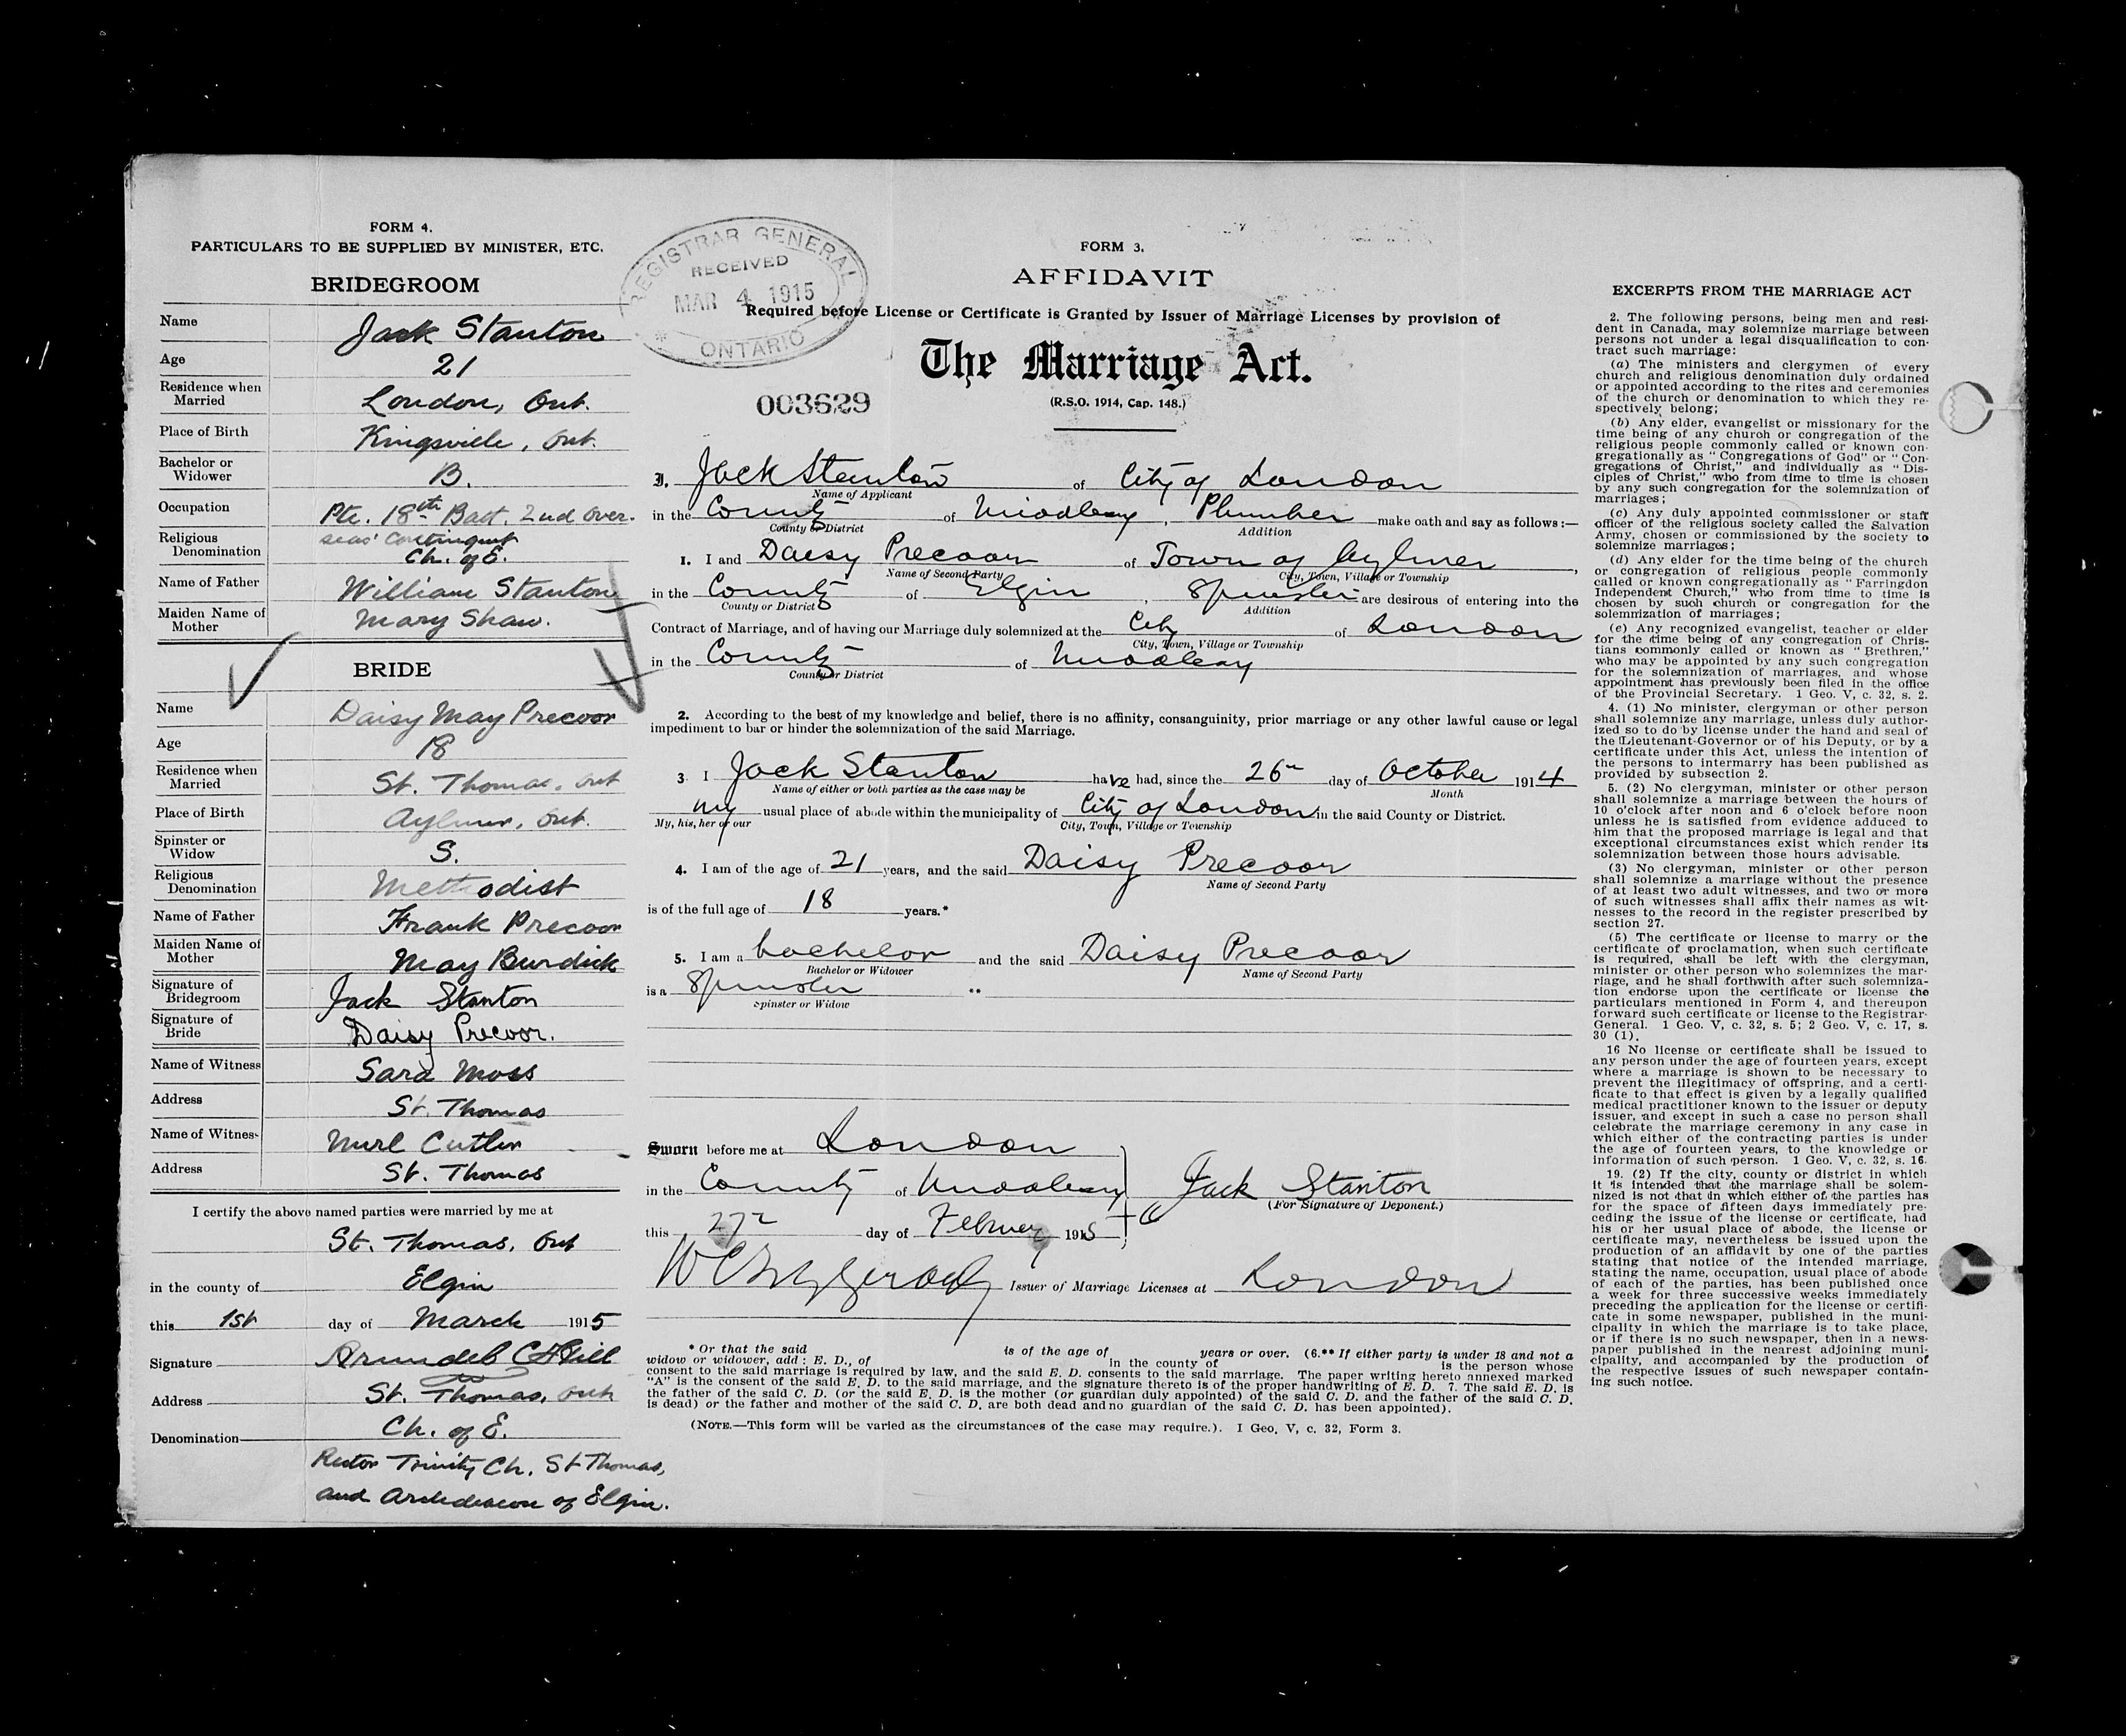 FORM 4.
PARTICULARS TO BE SUPPLIED BY MINISTER, ETC.
BRIDEGROOM
Name Jack Stanton
Age 21
Residence when Married London, Ont.
Place of Birth Kingsville, Ont.
Bachelor or Widower B.
Occupation Pte. 18th Batt. 2nd Over-
seas' Contingent
Religious Denomination Ch. of E.
Name of Father William Stanton
Maiden Name of Mother Mary Shaw.
BRIDE
Name Daisy May Precoor
Age 18
Residence when Married St. Thomas, Ont
Place of Birth Aylmer, Ont.
Spinster or Widow S.
Religious Denomination Methodist
Name of Father Frank Precoor
Maiden Name of Mother May Burdick
Signature of Bridegroom Jack Stanton
Signature of Bride Daisy Precoor.
Name of Witness Sara Moss
Address St. Thomas
Name of Witness Cutler
Address St. Thomas
I certify the above named parties were married by me at
St. Thomas, Ont
in the county of Elgin
this 1st day of March 1915
Signature Arundel C Hill
Address St. Thomas, Ont
Denomination Ch. of E.
Rector Trinity Ch. St Thomas,
and Archdeacon of Elgin.
REGISTRAR GENERAL
RECEIVED
MAR 4 1915
ONTARIO
FORM 3.
AFFIDAVIT
Required before License or Certificate is Granted by Issuer of Marriage Licenses by provision of
The Marriage Act.
(R.S.O. 1914, Cap. 148.)
003629
I, Jack Stanton of City of London
Name of Applicant
in the County of Middlesex, Plumber make oath and say as follows:—
County or District Addition
1. I and Daisy Precoor of Town of Aylmer,
Name of Second Party City, Town, Village or Township
in the County of Elgin, Spinster are desirous of entering into the
County or District Addition
Contract of Marriage, and of having our Marriage duly solemnized at the City of London
City, Town, Village or Township
in the County of Middlesex
County or District
2. According to the best of my knowledge and belief, there is no affinity, consanguinity, prior marriage or any other lawful cause or legal
impediment to bar or hinder the solemnization of the said Marriage.
3 I Jack Stanton have had, since the 26 day of October 1914
Name of either or both parties as the case may be Month
my usual place of abode within the municipality of City of London in the said County or District.
My, his, her or our City, Town, Village or Township
4. I am of the age of 21 years, and the said Daisy Precoor
Name of Second Party
is of the full age of 18 years.*
5. I am a bachelor and the said Daisy Precoor
Bachelor or Widower Name of Second Party
is a Spinster
Spinster or Widow
Sworn before me at London
in the County of Middlesex Jack Stanton
(For Signature of Deponent.)
this 27 day of February 1915
Issuer of Marriage Licenses at London
* Or that the said is of the age of years or over. (6.** If either party is under 18 and not a
widow or widower, add: E. D., of in the county of is the person whose
consent to the said marriage is required by law, and the said E. D. consents to the said marriage. The paper writing hereto annexed marked
"A" is the consent of the said E. D. to the said marriage, and the signature thereto is of the proper handwriting of E. D. 7. The said E. D. is
the father of the said C. D. (or the said E. D. is the mother (or guardian duly appointed) of the said C. D. and the father of the said C. D.
is dead) or the father and mother of the said C. D. are both dead and no guardian of the said C. D. has been appointed).
(NOTE.—This form will be varied as the circumstances of the case may require.). 1 Geo. V, c. 32, Form 3.
EXCERPTS FROM THE MARRIAGE ACT
2. The following persons, being men and resi-
dent in Canada, may solemnize marriage between
persons not under a legal disqualification to con-
tract such marriage:
(a) The ministers and clergymen of every
church and religious denomination duly ordained
or appointed according to the rites and ceremonies
of the church or denomination to which they re-
spectively belong;
(b) Any elder, evangelist or missionary for the
time being of any church or congregation of the
religious people commonly called or known con-
gregationally as "Congregations of God" or "Con-
gregations of Christ," and individually as "Dis-
ciples of Christ," who from time to time is chosen
by any such congregation for the solemnization of
marriages;
(c) Any duly appointed commissioner or staff
officer of the religious society called the Salvation
Army, chosen or commissioned by the society to
solemnize marriages;
(d) Any elder for the time being of the church
or congregation of religious people commonly
called or known congregationally as "Farringdon
Independent Church," who from time to time is
chosen by such church or congregation for the
solemnization of marriages;
(e) Any recognized evangelist, teacher or elder
for the time being of any congregation of Chris-
tians commonly called or known as "Brethren,"
who may be appointed by any such congregation
for the solemnization of marriages, and whose
appointment has previously been filed in the office
of the Provincial Secretary. 1 Geo. V, c. 32, s. 2.
4. (1) No minister, clergyman or other person
shall solemnize any marriage, unless duly author-
ized so to do by license under the hand and seal of
the Lieutenant-Governor or of his Deputy, or by a
certificate under this Act, unless the intention of
the persons to intermarry has been published as
provided by subsection 2.
5. (2) No clergyman, minister or other person
shall solemnize a marriage between the hours of
10 o'clock after noon and 6 o'clock before noon
unless he is satisfied from evidence adduced to
him that the proposed marriage is legal and that
exceptional circumstances exist which render its
solemnization between those hours advisable.
(3) No clergyman, minister or other person
shall solemnize a marriage without the presence
of at least two adult witnesses, and two or more
of such witnesses shall affix their names as wit-
nesses to the record in the register prescribed by
section 27.
(5) The certificate or license to marry or the
certificate of proclamation, when such certificate
is required, shall be left with the clergyman,
minister or other person who solemnizes the mar-
riage, and he shall forthwith after such solemniza-
tion endorse upon the certificate or license the
particulars mentioned in Form 4, and thereupon
forward such certificate or license to the Registrar-
General. 1 Geo. V, c. 32, s. 5; 2 Geo. V, c. 17, s.
30 (1).
16 No license or certificate shall be issued to
any person under the age of fourteen years, except
where a marriage is shown to be necessary to
prevent the illegitimacy of offspring, and a certi-
ficate to that effect is given by a legally qualified
medical practitioner known to the issuer or deputy
issuer, and except in such a case no person shall
celebrate the marriage ceremony in any case in
which either of the contracting parties is under
the age of fourteen years, to the knowledge or
information of such person. 1 Geo. V, c. 32, s. 16.
19. (2) If the city, county or district in which
it is intended that the marriage shall be solem-
nized is not that in which either of the parties has
for the space of fifteen days immediately pre-
ceding the issue of the license or certificate, had
his or her usual place of abode, the license or
certificate may, nevertheless be issued upon the
production of an affidavit by one of the parties
stating that notice of the intended marriage,
stating the name, occupation, usual place of abode
of each of the parties, has been published once
a week for three successive weeks immediately
preceding the application for the license or certifi-
cate in some newspaper, published in the muni-
cipality in which the marriage is to take place,
or if there is no such newspaper, then in a news-
paper published in the nearest adjoining muni-
cipality, and accompanied by the production of
the respective issues of such newspaper contain-
ing such notice.